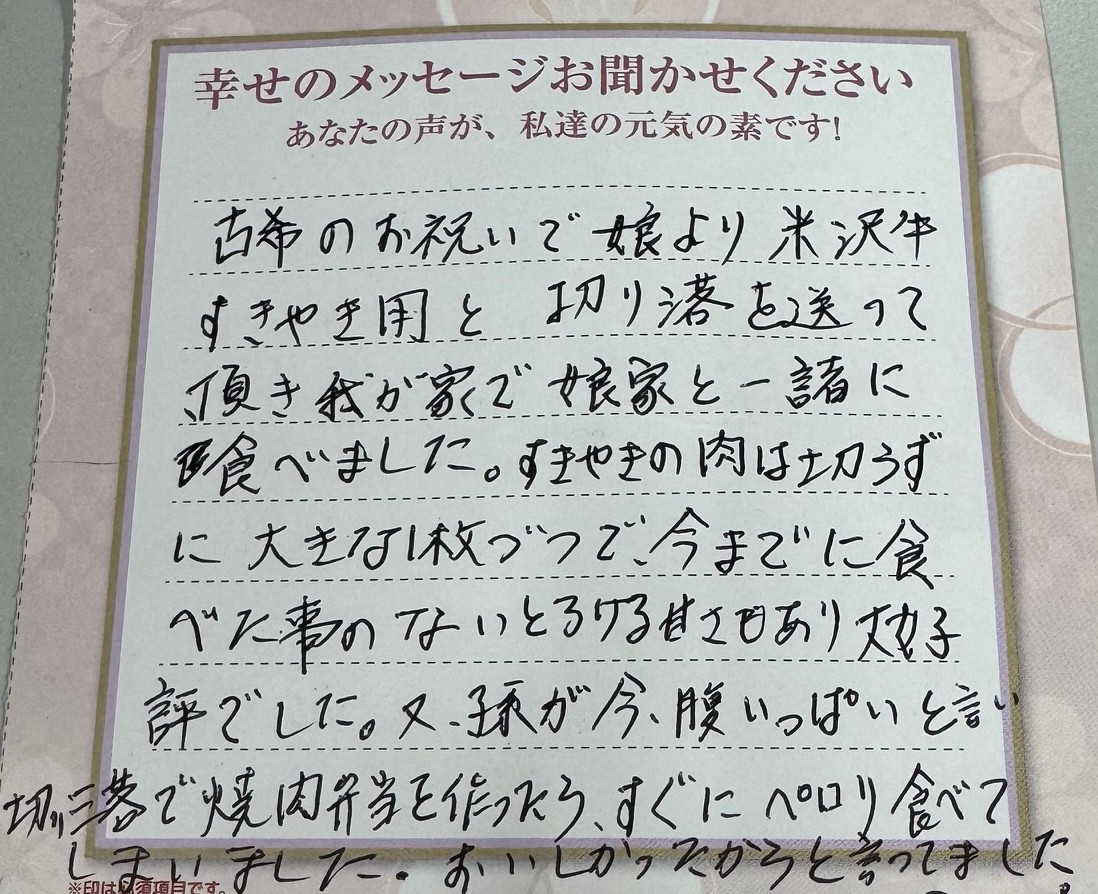 幸せのメッセージお聞かせください
あなたの声が、私達の元気の素です!
古希のお祝いで娘より米沢牛
すきやき用と切り落を送って
頂き我が家で娘家と一諸に
食べました。すきやきの肉は切らず
に大きな1枚づつで、今までに食
べた事のないとろける甘さもあり大好
評でした。又、孫が今、腹いっぱいと言い
切り落で焼肉弁当を作ったら、すぐにペロリ食べて
しまいました。おいしかったからと言ってました。
※印は必須項目です。